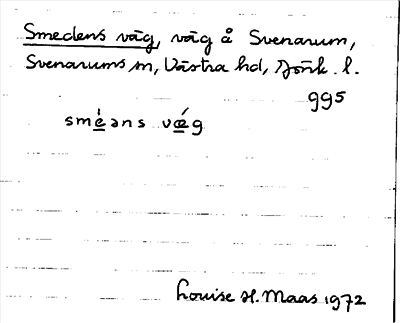 Smedens väg, väg å Svenarum,
Svenarums sn, Västra hd, Jönk. l.
995
sméəns vǽg
Louise H. Maas 1972